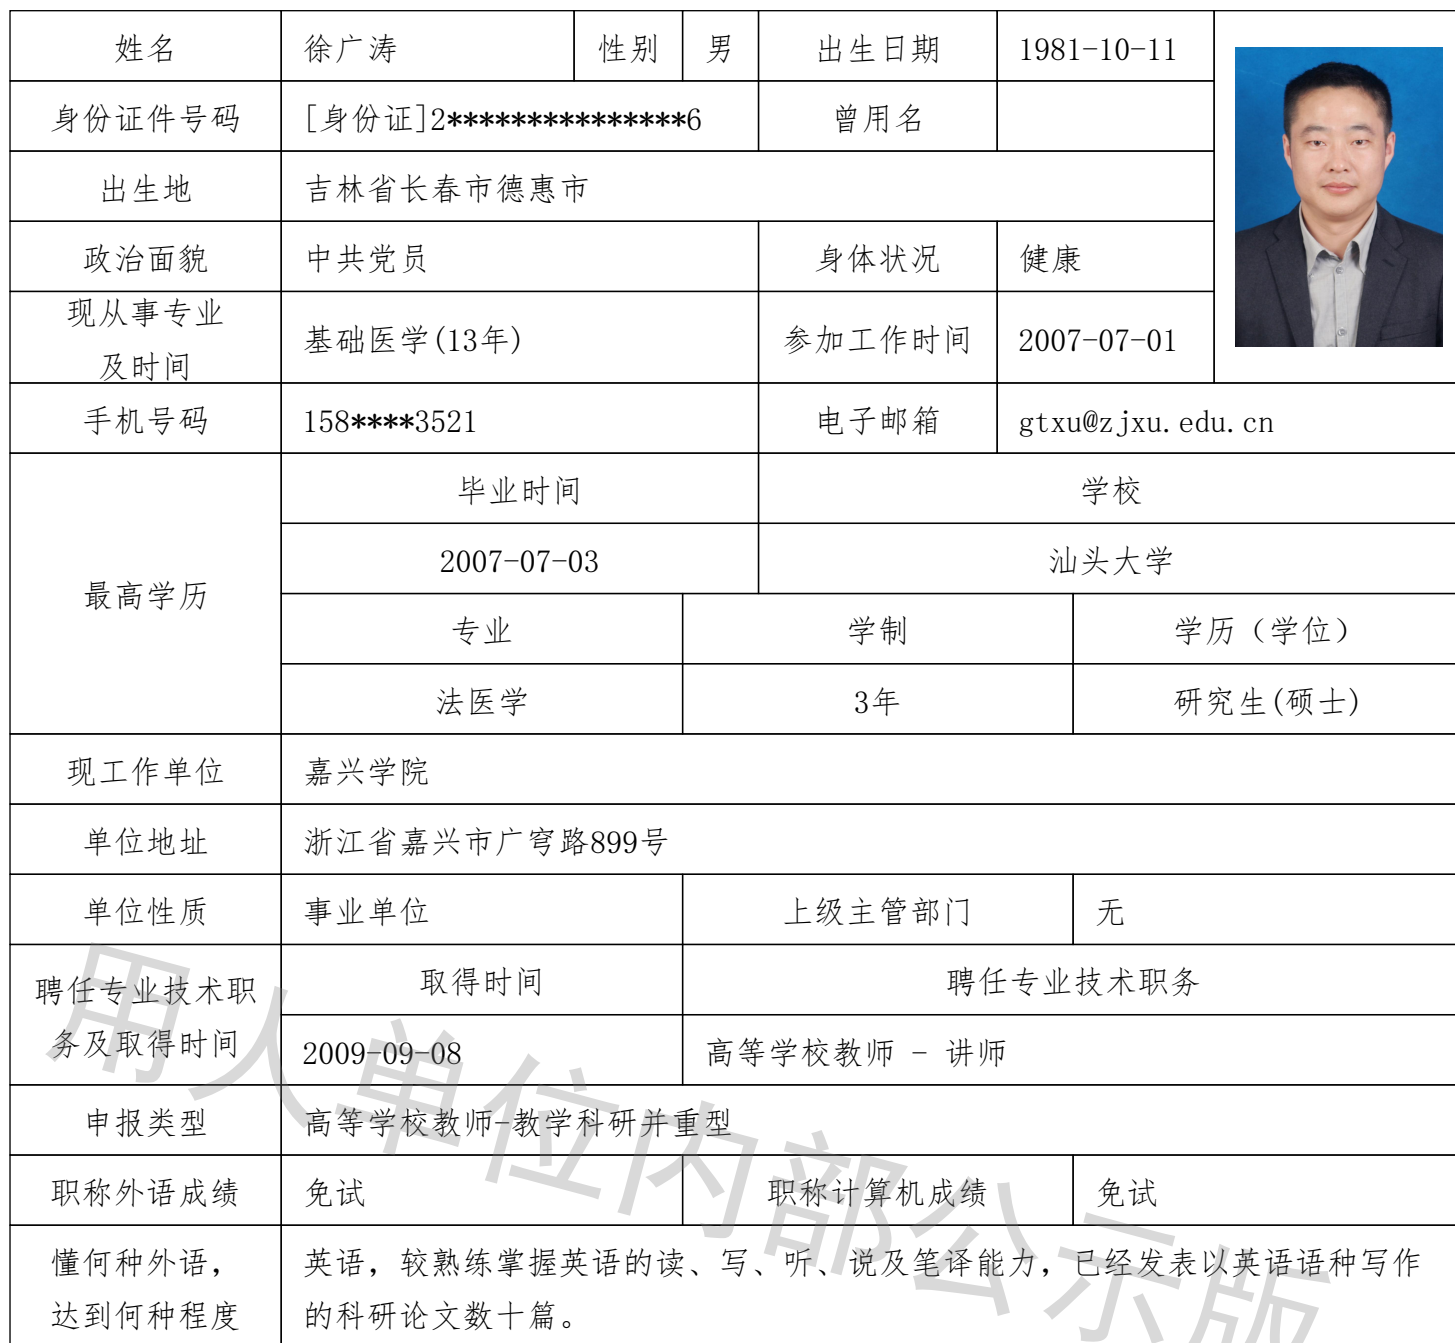 姓名 徐广涛 性别 男 出生日期 1981-10-11
身份证件号码 [身份证]2***************6 曾用名
出生地 吉林省长春市德惠市
政治面貌 中共党员 身体状况 健康
现从事专业
及时间 基础医学(13年) 参加工作时间 2007-07-01
手机号码 158****3521 电子邮箱 gtxu@zjxu.edu.cn
最高学历
毕业时间 学校
2007-07-03 汕头大学
专业 学制 学历（学位）
法医学 3年 研究生(硕士)
现工作单位 嘉兴学院
单位地址 浙江省嘉兴市广穹路899号
单位性质 事业单位 上级主管部门 无
聘任专业技术职
务及取得时间
取得时间 聘任专业技术职务
2009-09-08 高等学校教师 - 讲师
申报类型 高等学校教师-教学科研并重型
职称外语成绩 免试 职称计算机成绩 免试
懂何种外语，
达到何种程度
英语，较熟练掌握英语的读、写、听、说及笔译能力，已经发表以英语语种写作
的科研论文数十篇。
用人单位内部公示版